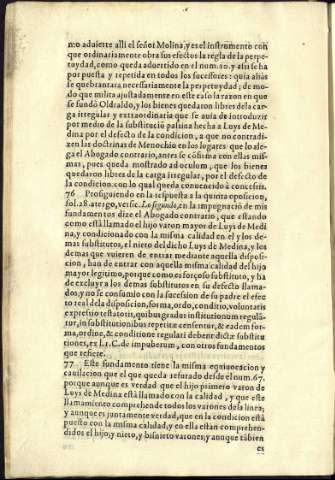 mo adaiente alli el señor Molina, y es el instrumento con
que ordinariamente obra sus efectos la regla de la perpe-
tuydad, como queda aduertido en el num.20. y assi se ha
por puesta y repetida en todos los successores: quia aliàs
se quebrantara necessariamente la perpetuydad; de mo-
do que milita ajustadamente en este caso la razon en que
se fundò Oldraldo, y los bienes quedaron libres de la car
ga irregular y extraordinaria que se auia de introduzir
por medio de la substituciõ palina hecha a Luys de Me-
dina por el defecto de la condicion, a que no contradi-
zen las doctrinas de Menochio en los lugares que lo ale-
ga el Abogado contrario, antes se cõfirma con ellas mis-
mas, pues queda mostrado ad oculum, que los bienes
quedaron libres de la carga irregular, por el defecto de
la condicion, con lo qual queda conuencido à concessis.
76 Prosiguiendo en la respuesta a la quinta oposicion,
fol.18. atergo, versic. Lo segundo, en la impugnaciõ de mis
fundamentos dize el Abogado contrario, que estando
como està llamado el hijo varon mayor de Luys de Medi
na, y condicionado con la misma calidad en el y los de-
mas substitutos, el nieto del dicho Luys de Medina, y los
demas que vuieren de entrar mediante aquella disposi-
cion, han de entrar con aquella misma calidad del hijo
mayor legitimo, porque como es forçoso substituto, y ha
de excluyr a los demas substitutos en su defecto llama-
dos, y no se consumio con la sucession de su padre el efe-
cto real de la disposicion, forma, ordo, conditio, voluntatis
expressio testatoris, quibus gradus institutionum regulã-
tur, in substitutionibus repetitæ censentur, & eadem for-
ma, ordine, & conditione regulari debent dictæ substitu-
tiones, ex l.1. C. de impuberum, con otros fundamentos
que refiere.
77 Este fundamento tiene la misma equiuocacion y
cauilacion que el que queda refutado desde el num.67.
porque aunque es verdad que el hijo primero varon de
Luys de Medina està llamado con la calidad, y que este
llamamiento comprehende todos los varones de la linea;
y aunque es juntamente verdad, que en la condicion està
puesto con la misma calidad, y en ella estàn comprehen-
didos el hijo, y nieto, y bisnieto varones; y aunque tãbien
es